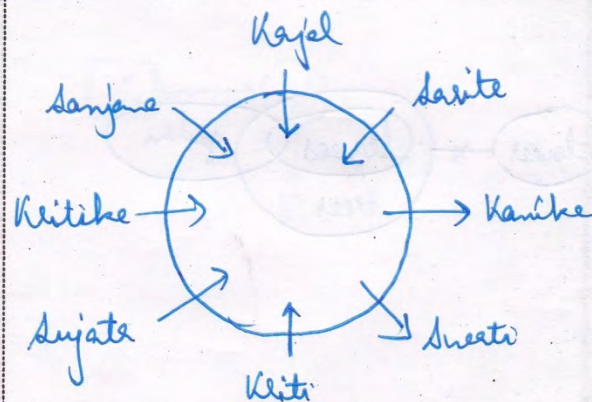 Kajal
Sanjana
Sarita
Kritika
Kanika
Sujata
Swati
Kriti